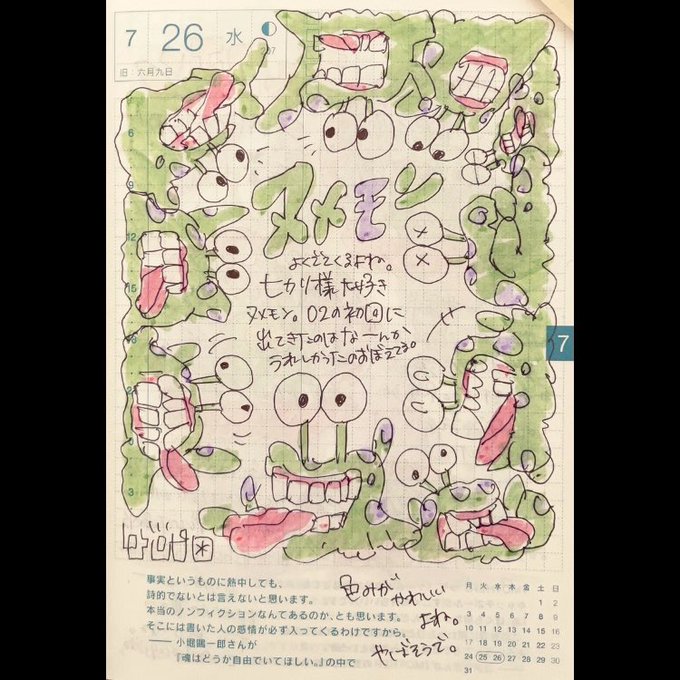 7 26 水
旧:六月九日
ヌメモン
よくでてくるよね。
セカリ様大好き
ヌメモン。02の初回に
出てきたのはなーんか
うれしかったのおぼえてる。
7
事実というものに熱中しても、
詩的でないとは言えないと思います。
本当のノンフィクションなんてあるのか、とも思います。
そこには書いた人の感情が必ず入ってくるわけですから。
── 小堀鷗一郎さんが
『魂はどうか自由でいてほしい。』の中で
色みが
やさしい
よね。
やばそうで。
月 火 水 木 金 土 日
1 2
3 4 5 6 7 8 9
10 11 12 13 14 15 16
17 18 19 20 21 22 23
24 25 26 27 28 29 30
31